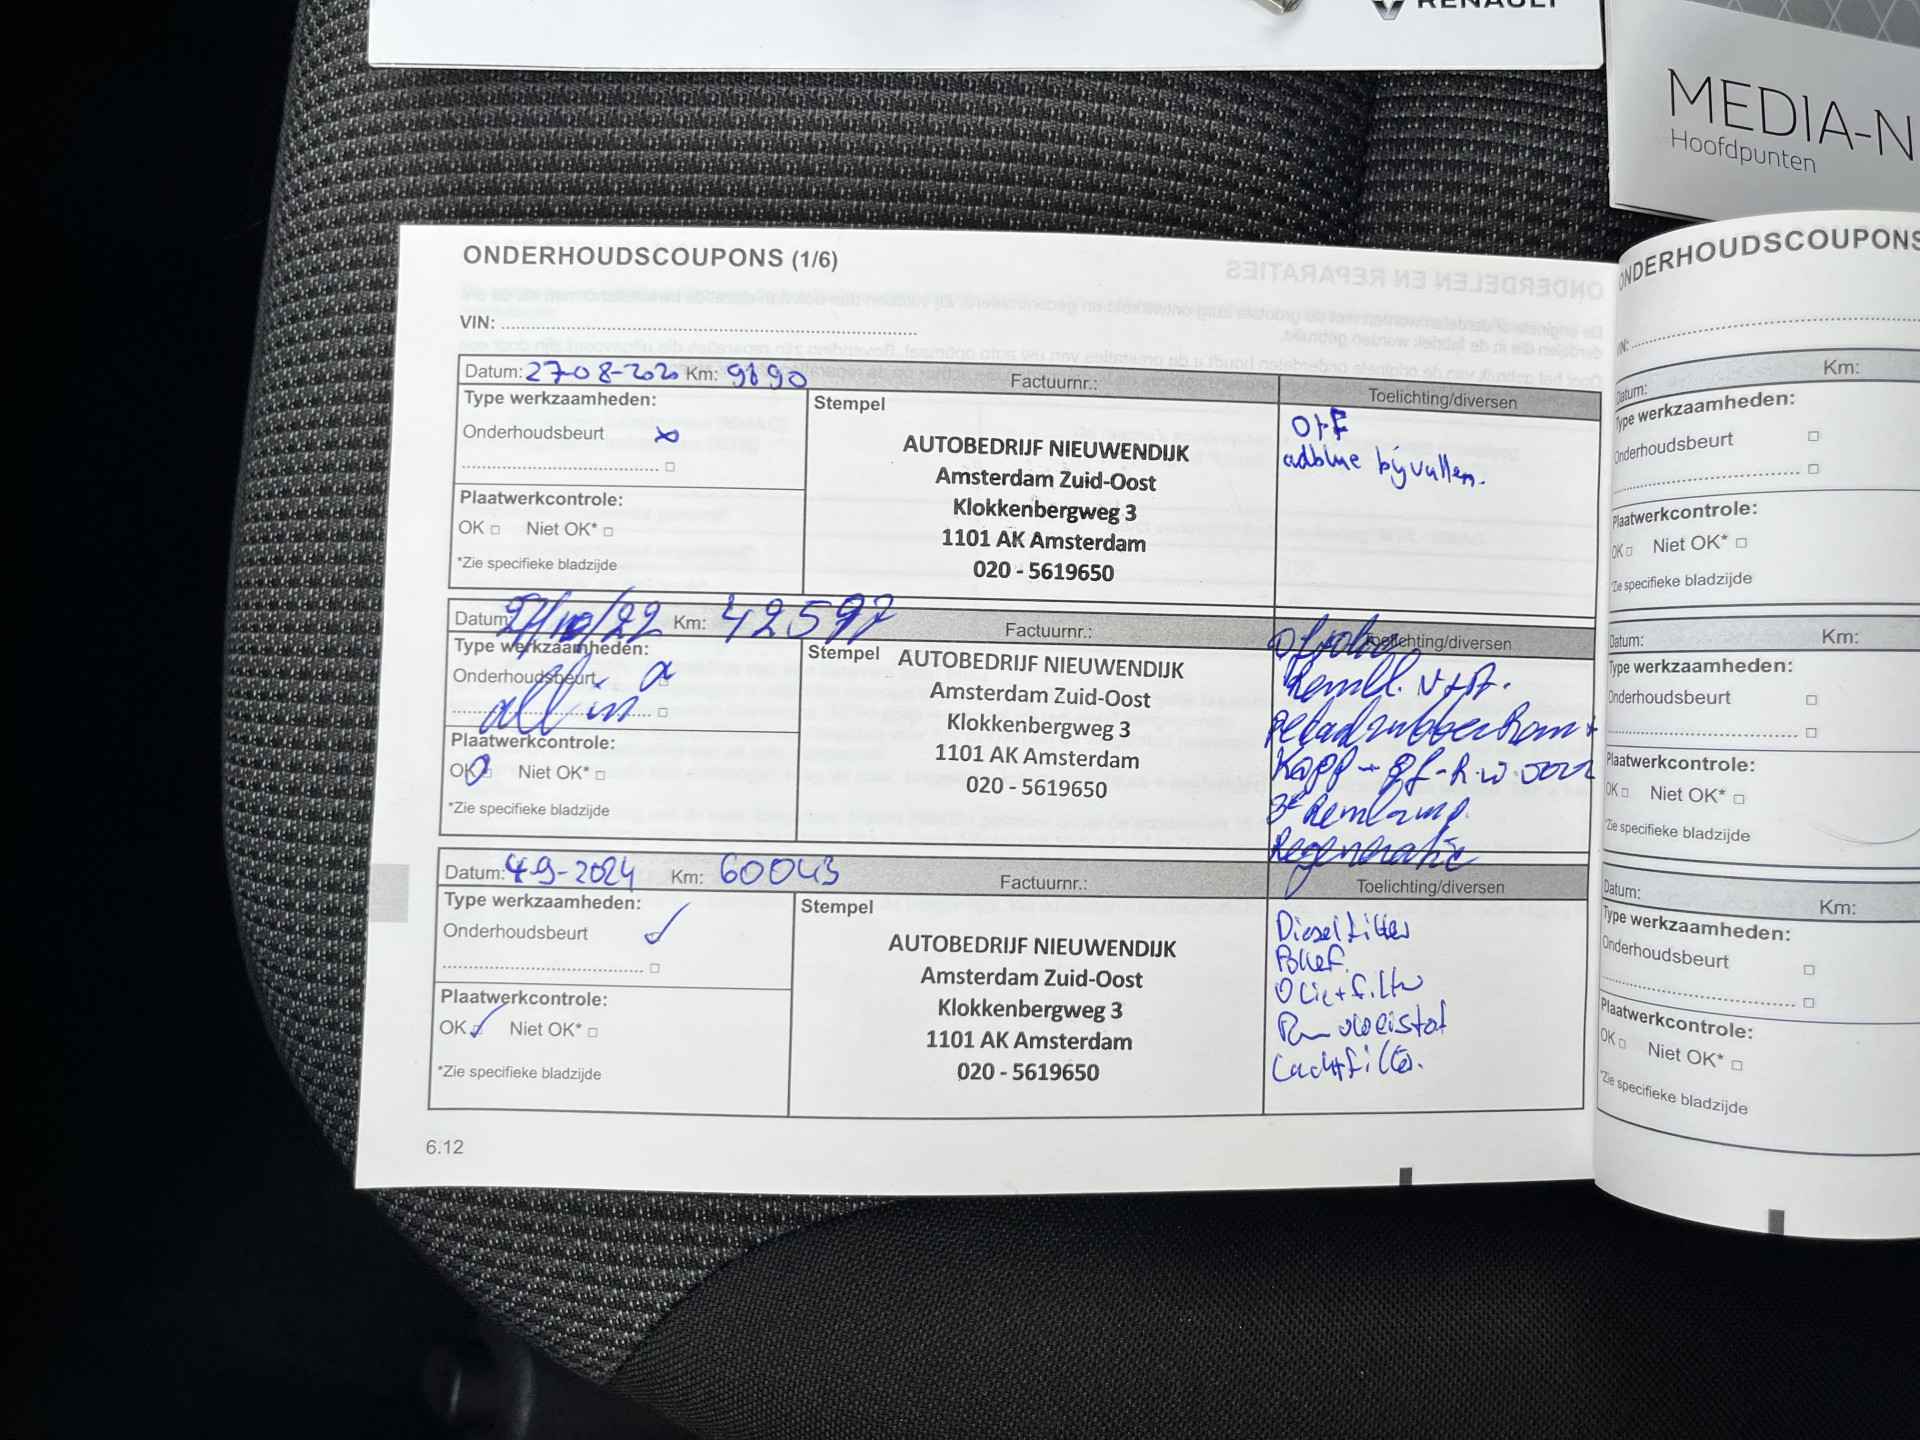 RENAULT
MEDIA-N
Hoofdpunten
ONDERHOUDSCOUPONS (1/6)
VIN:
Datum: 27-08-2020 Km: 9890 Factuurnr.: Toelichting/diversen
Type werkzaamheden:
Onderhoudsbeurt
Stempel
AUTOBEDRIJF NIEUWENDIJK
Amsterdam Zuid-Oost
Klokkenbergweg 3
1101 AK Amsterdam
020 - 5619650
O+F
adblue bijvullen.
Plaatwerkcontrole:
OK Niet OK*
*Zie specifieke bladzijde
Datum: /22 Km: 42597 Factuurnr.: Toelichting/diversen
Type werkzaamheden:
Onderhoudsbeurt
all in
Stempel
AUTOBEDRIJF NIEUWENDIJK
Amsterdam Zuid-Oost
Klokkenbergweg 3
1101 AK Amsterdam
020 - 5619650
Reml. V+A.
3e Remlamp.
Regeneratie
Plaatwerkcontrole:
OK Niet OK*
*Zie specifieke bladzijde
Datum: 4-9-2024 Km: 60043 Factuurnr.: Toelichting/diversen
Type werkzaamheden:
Onderhoudsbeurt
Stempel
AUTOBEDRIJF NIEUWENDIJK
Amsterdam Zuid-Oost
Klokkenbergweg 3
1101 AK Amsterdam
020 - 5619650
Dieselfilter
Pollef.
Olie+filter
Remvloeistof
Luchtfilter.
Plaatwerkcontrole:
OK Niet OK*
*Zie specifieke bladzijde
6.12
ONDERHOUDSCOUPONS
Datum: Km:
Type werkzaamheden:
Onderhoudsbeurt
Plaatwerkcontrole:
OK Niet OK*
*Zie specifieke bladzijde
Datum: Km:
Type werkzaamheden:
Onderhoudsbeurt
Plaatwerkcontrole:
OK Niet OK*
*Zie specifieke bladzijde
Datum: Km:
Type werkzaamheden:
Onderhoudsbeurt
Plaatwerkcontrole:
OK Niet OK*
*Zie specifieke bladzijde